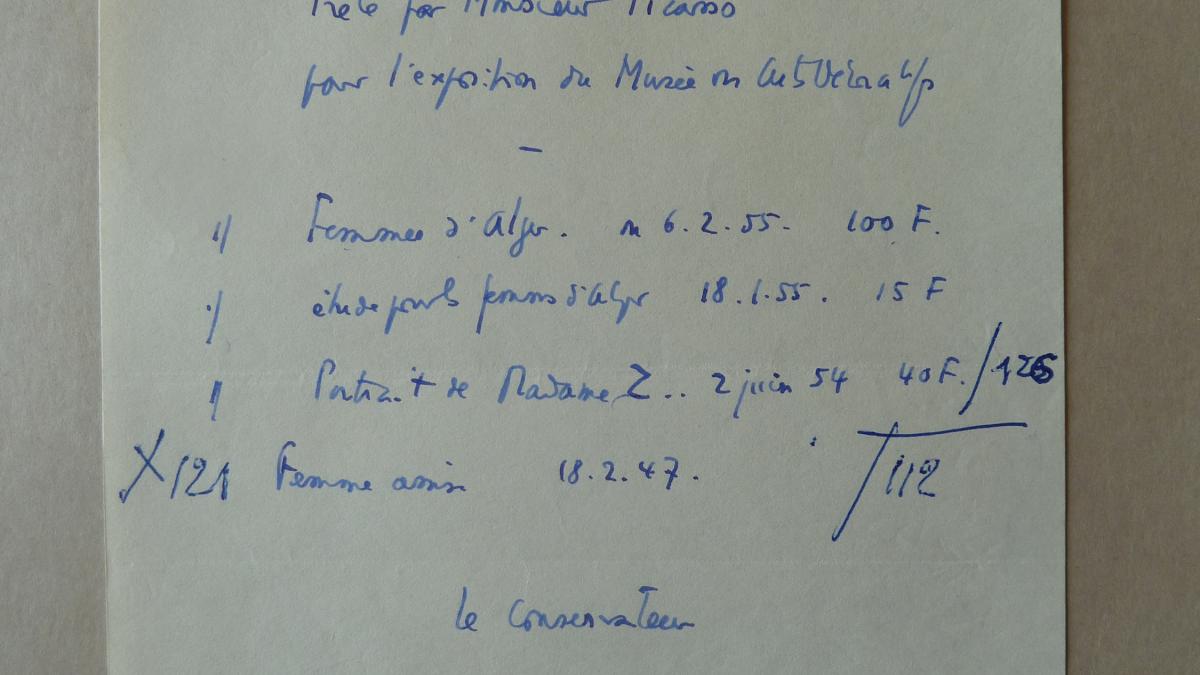 Prêté par Monsieur Picasso
pour l'exposition du Musée
—
Femmes d'Alger. 6.2.55. 100 F.
étude pour les femmes d'Alger 18.1.55. 15 F
Portrait de Madame Z.. 2 juin 54 40 F. /126
X 121 Femme assise 18.2.47. /112
le Conservateur